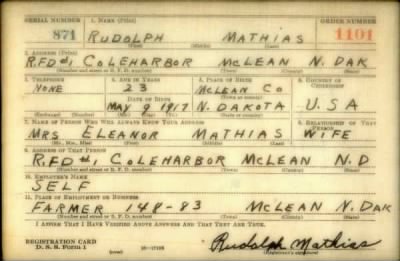 SERIAL NUMBER 1. NAME (Print) ORDER NUMBER
871 RUDOLPH MATHIAS 1101
(First) (Middle) (Last)
2. ADDRESS (Print)
R.F.D #1 COLEHARBOR McLEAN N. DAK
(Number and street or R. F. D. number) (Town) (County) (State)
3. TELEPHONE 4. AGE IN YEARS 5. PLACE OF BIRTH 6. COUNTRY OF CITIZENSHIP
NONE 23 McLEAN CO
DATE OF BIRTH (Town or county)
MAY 9 1917 N. DAKOTA U.S.A
(Mo.) (Day) (Yr.) (State or country)
7. NAME OF PERSON WHO WILL ALWAYS KNOW YOUR ADDRESS 8. RELATIONSHIP OF THAT PERSON
MRS ELEANOR MATHIAS WIFE
(Mr., Mrs., Miss) (First) (Middle) (Last)
9. ADDRESS OF THAT PERSON
R.F.D #1 COLEHARBOR McLEAN N.D
(Number and street or R. F. D. number) (Town) (County) (State)
10. EMPLOYER'S NAME
SELF
11. PLACE OF EMPLOYMENT OR BUSINESS
FARMER 148-83 McLEAN N. DAK
(Number and street or R. F. D. number) (Town) (County) (State)
I AFFIRM THAT I HAVE VERIFIED ABOVE ANSWERS AND THAT THEY ARE TRUE.
REGISTRATION CARD
D. S. S. Form 1 (over) Rudolph Mathias
(Registrant's signature)